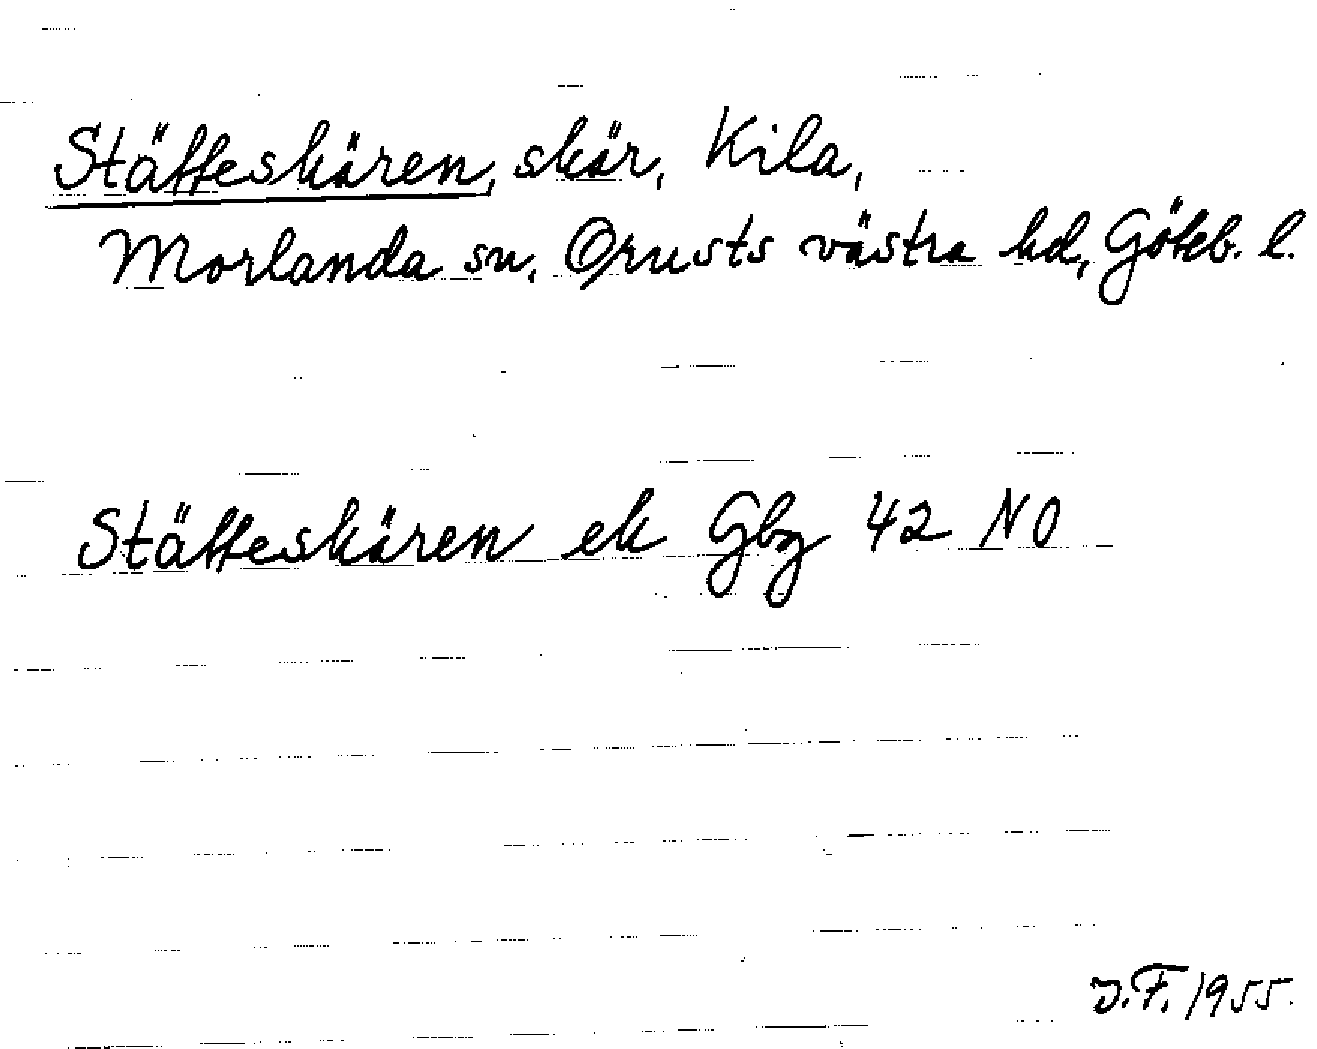 Stäffeskären, skär, Kila,
Morlanda sn, Orusts västra hd, Göteb. l.
Stäffeskären ek Gbg 42 NO
J.F. 1955.